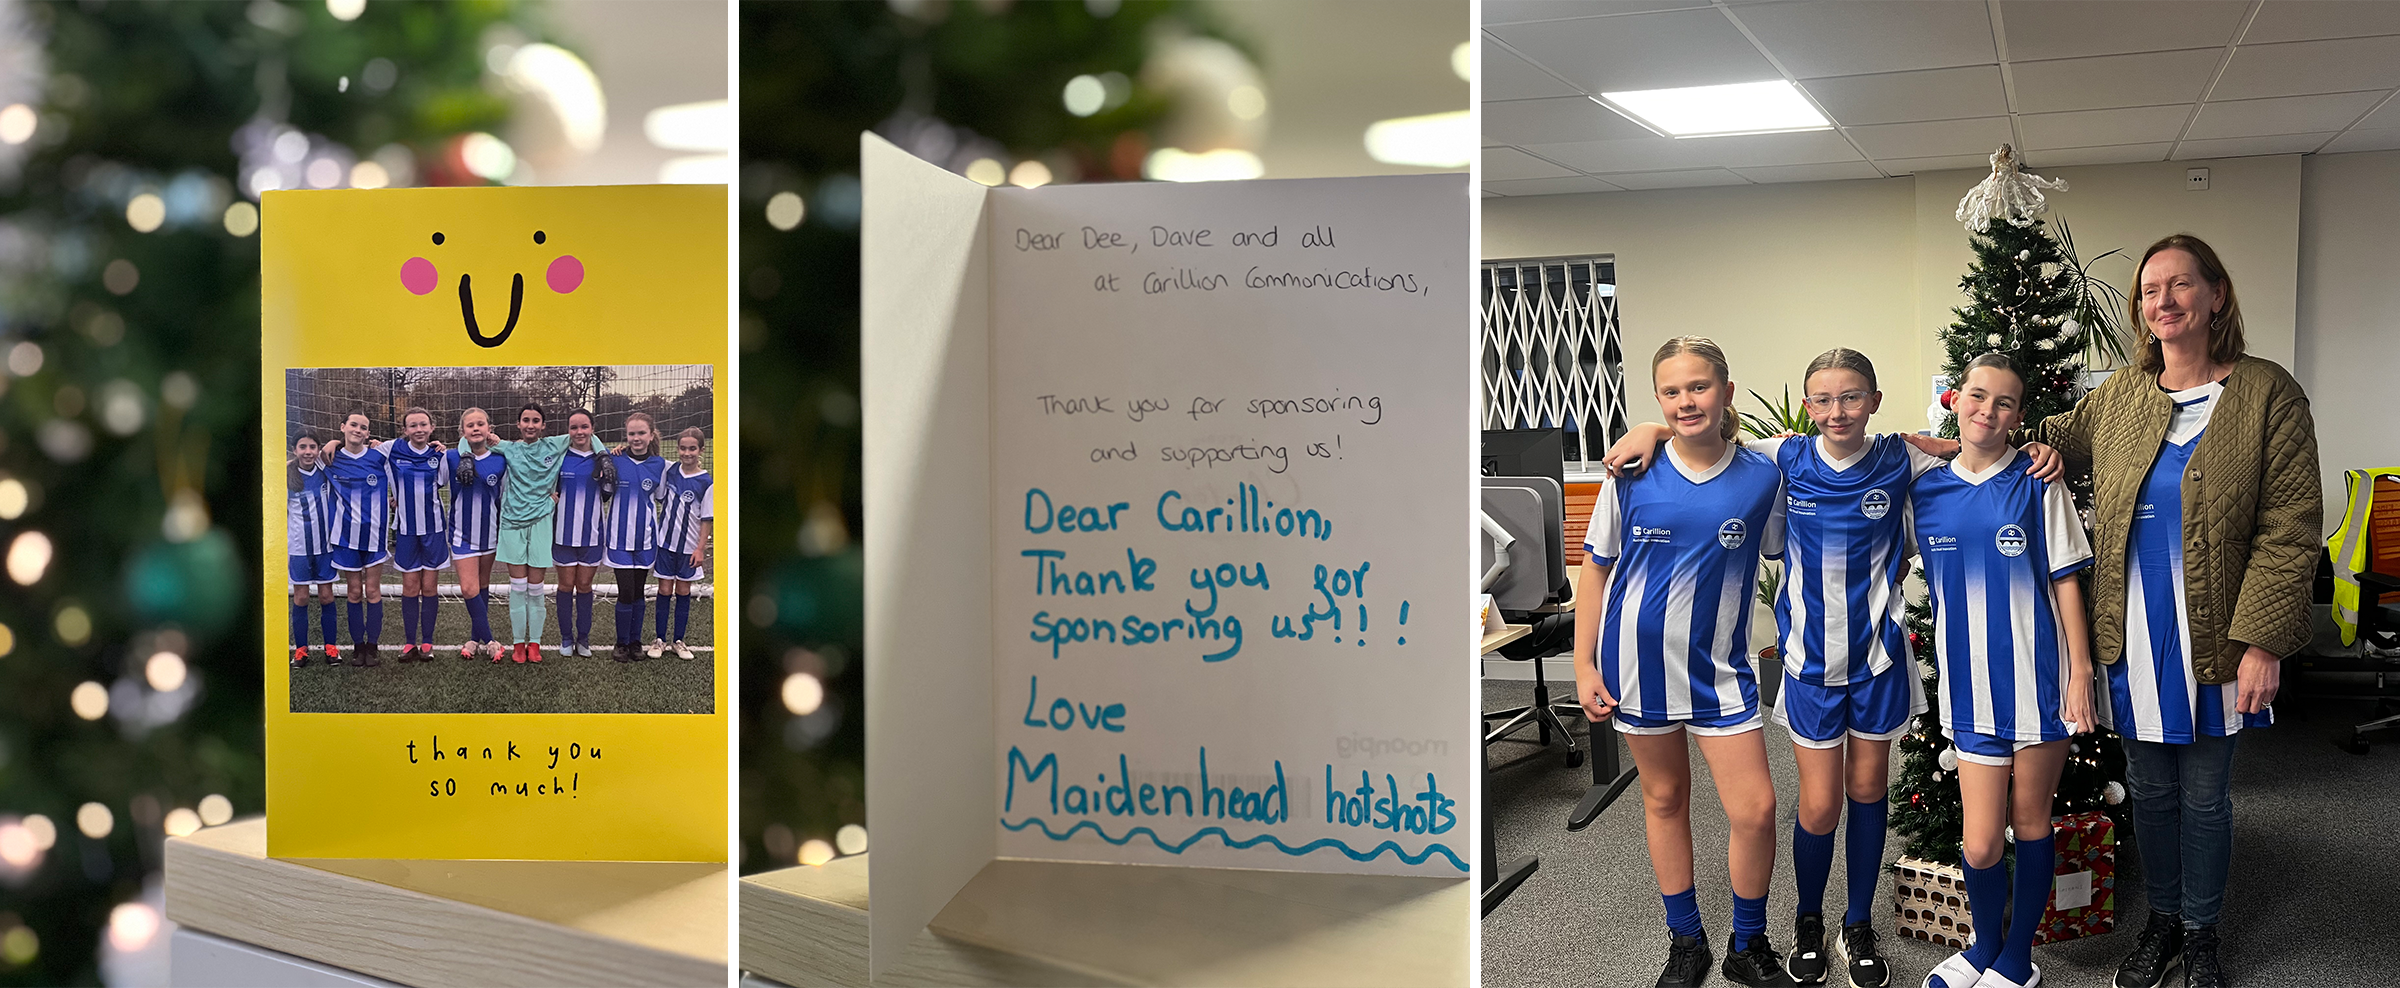 thank you
so much!
Dear Dee, Dave and all
at Carillion Communications,
Thank you for sponsoring
and supporting us!
Dear Carillion,
Thank you for
sponsoring us!! !
Love
Maidenhead hotshots
moonpig
Carillion
Carillion
Carillion